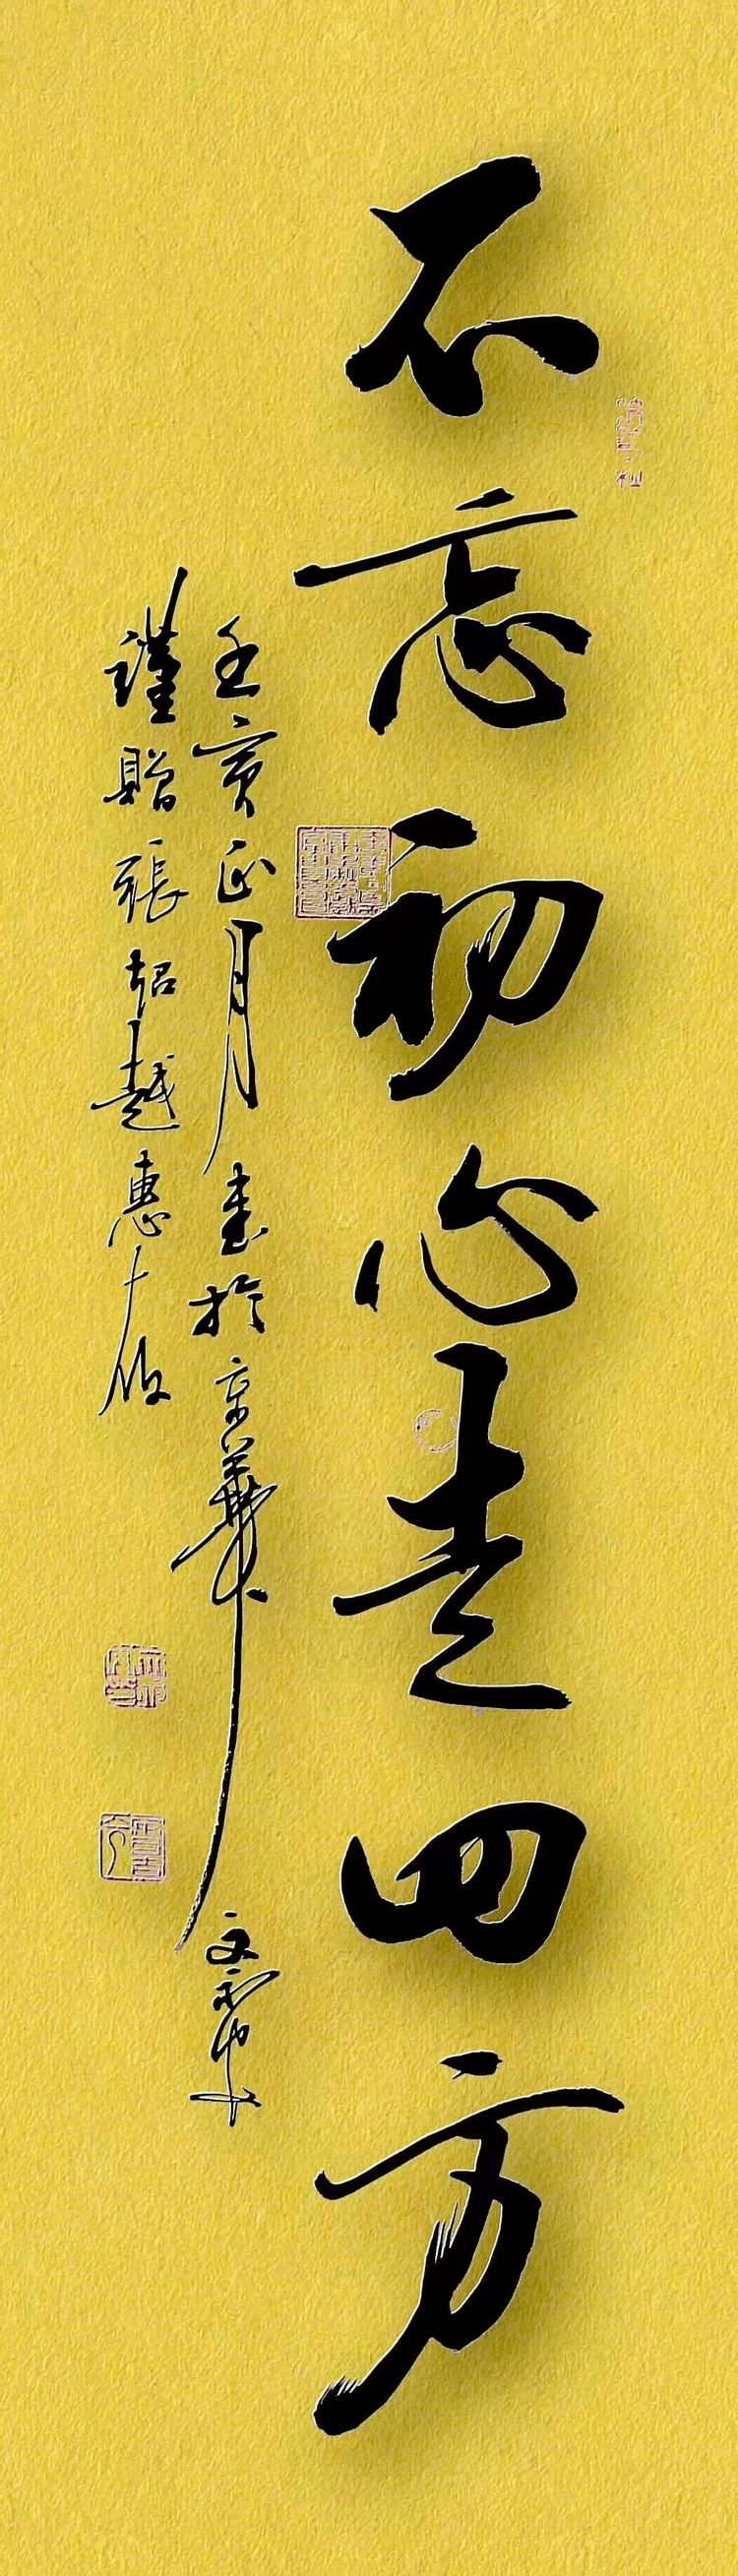 不忘初心走四方
壬寅正月書於京華
謹贈張超越惠存